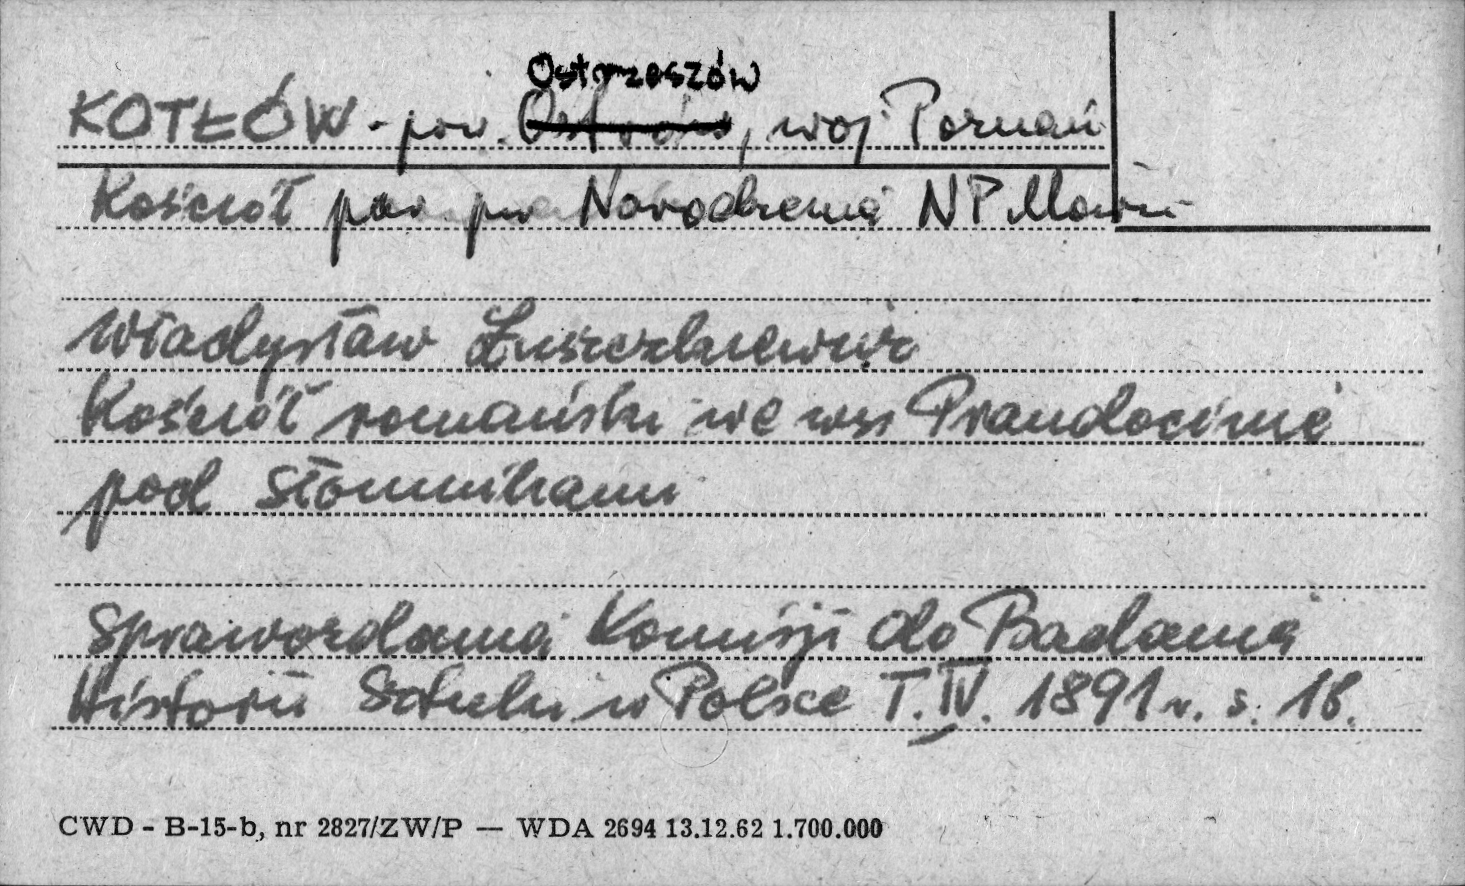 Ostrzeszów
KOTŁÓW - pow. Ostrów, woj Poznań
Kościół par pw Narodzenia NP Marii
Władysław Łuszczkiewicz
Kościół romański we wsi Prandocinie
pod Słomnikami
Sprawozdania Komisji do Badania
Historii Sztuki w Polsce T. IV. 1891 r. s. 18.
CWD - B-15-b, nr 2827/ZW/P — WDA 2694 13.12.62 1.700.000